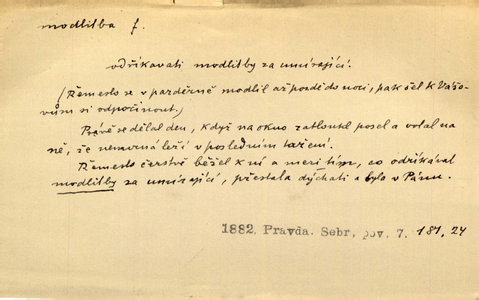 modlitba f.
odříkavati modlitby za umírající.
(Řemeslo se v pazderně modlil až pozdě do noci, pak šel k Vašo-
vům si odpočinout.)
Právě se dělal den, když na okno zatloukl posel a volal na
ně, že nemocná leží v posledním tažení.
Řemeslo čerstvě běžel k ní a mezi tím, co odříkával
modlitby za umírající, přestala dýchati a byla v Pánu.
1882, Pravda. Sebr. pov. 7. 181, 24